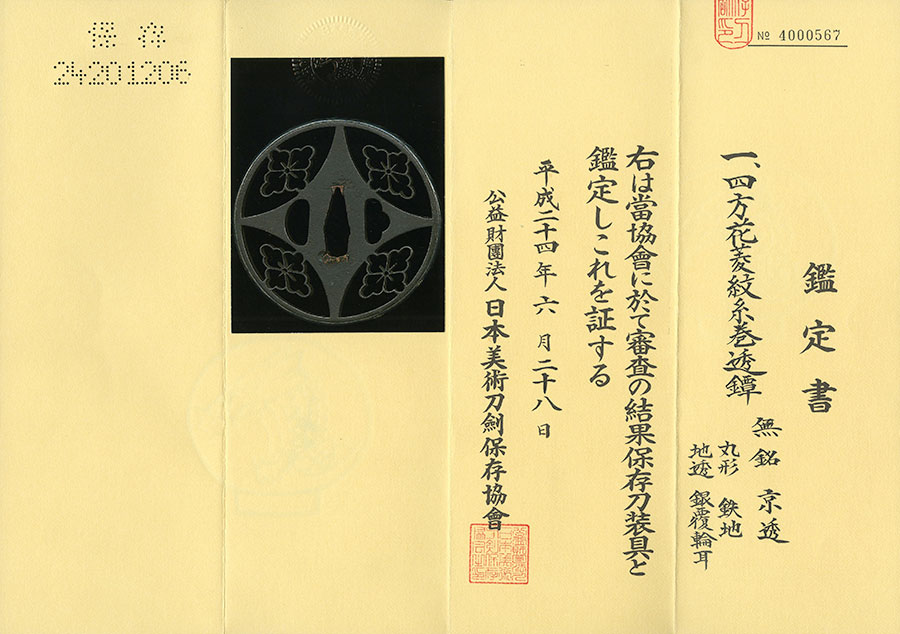 № 4000567
鑑定書
一、四方花菱紋糸巻透鐔
無銘 京透
丸形 鉄地
地透 銀覆輪耳
右は當協會に於て審査の結果保存刀装具と
鑑定しこれを証する
平成二十四年六月二十八日
公益財團法人日本美術刀劍保存協會
保存
24201206